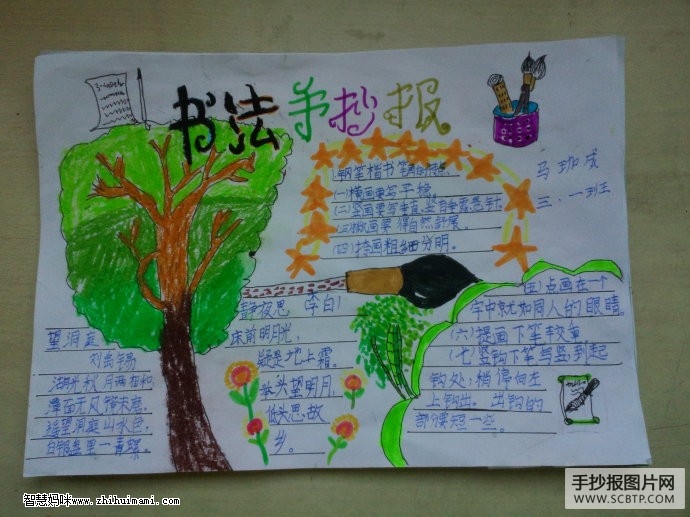 书法手抄报
马珈成
三·一班
钢笔楷书笔画的特点
(一)横画要写平稳。
(二)竖画要写垂直,竖有垂露悬针
(三)撇画要 得自然舒展
(四)捺画粗细分明。
(五)点画在一个
字中就如同人的眼睛。
(六)提画下笔较重
(七)竖钩下笔写竖,到起
钩处;稍停向左
上钩出。出钩的
部分要短一些。
静夜思 李白
床前明月光,
疑是地上霜。
举头望明月,
低头思故
乡。
望洞庭
刘禹锡
湖光秋月两相和
潭面无风镜未磨
遥望洞庭山水色
白银盘里一青螺
智慧妈咪www.zhihuimami.com
手抄报图片网
WWW.SCBTP.COM